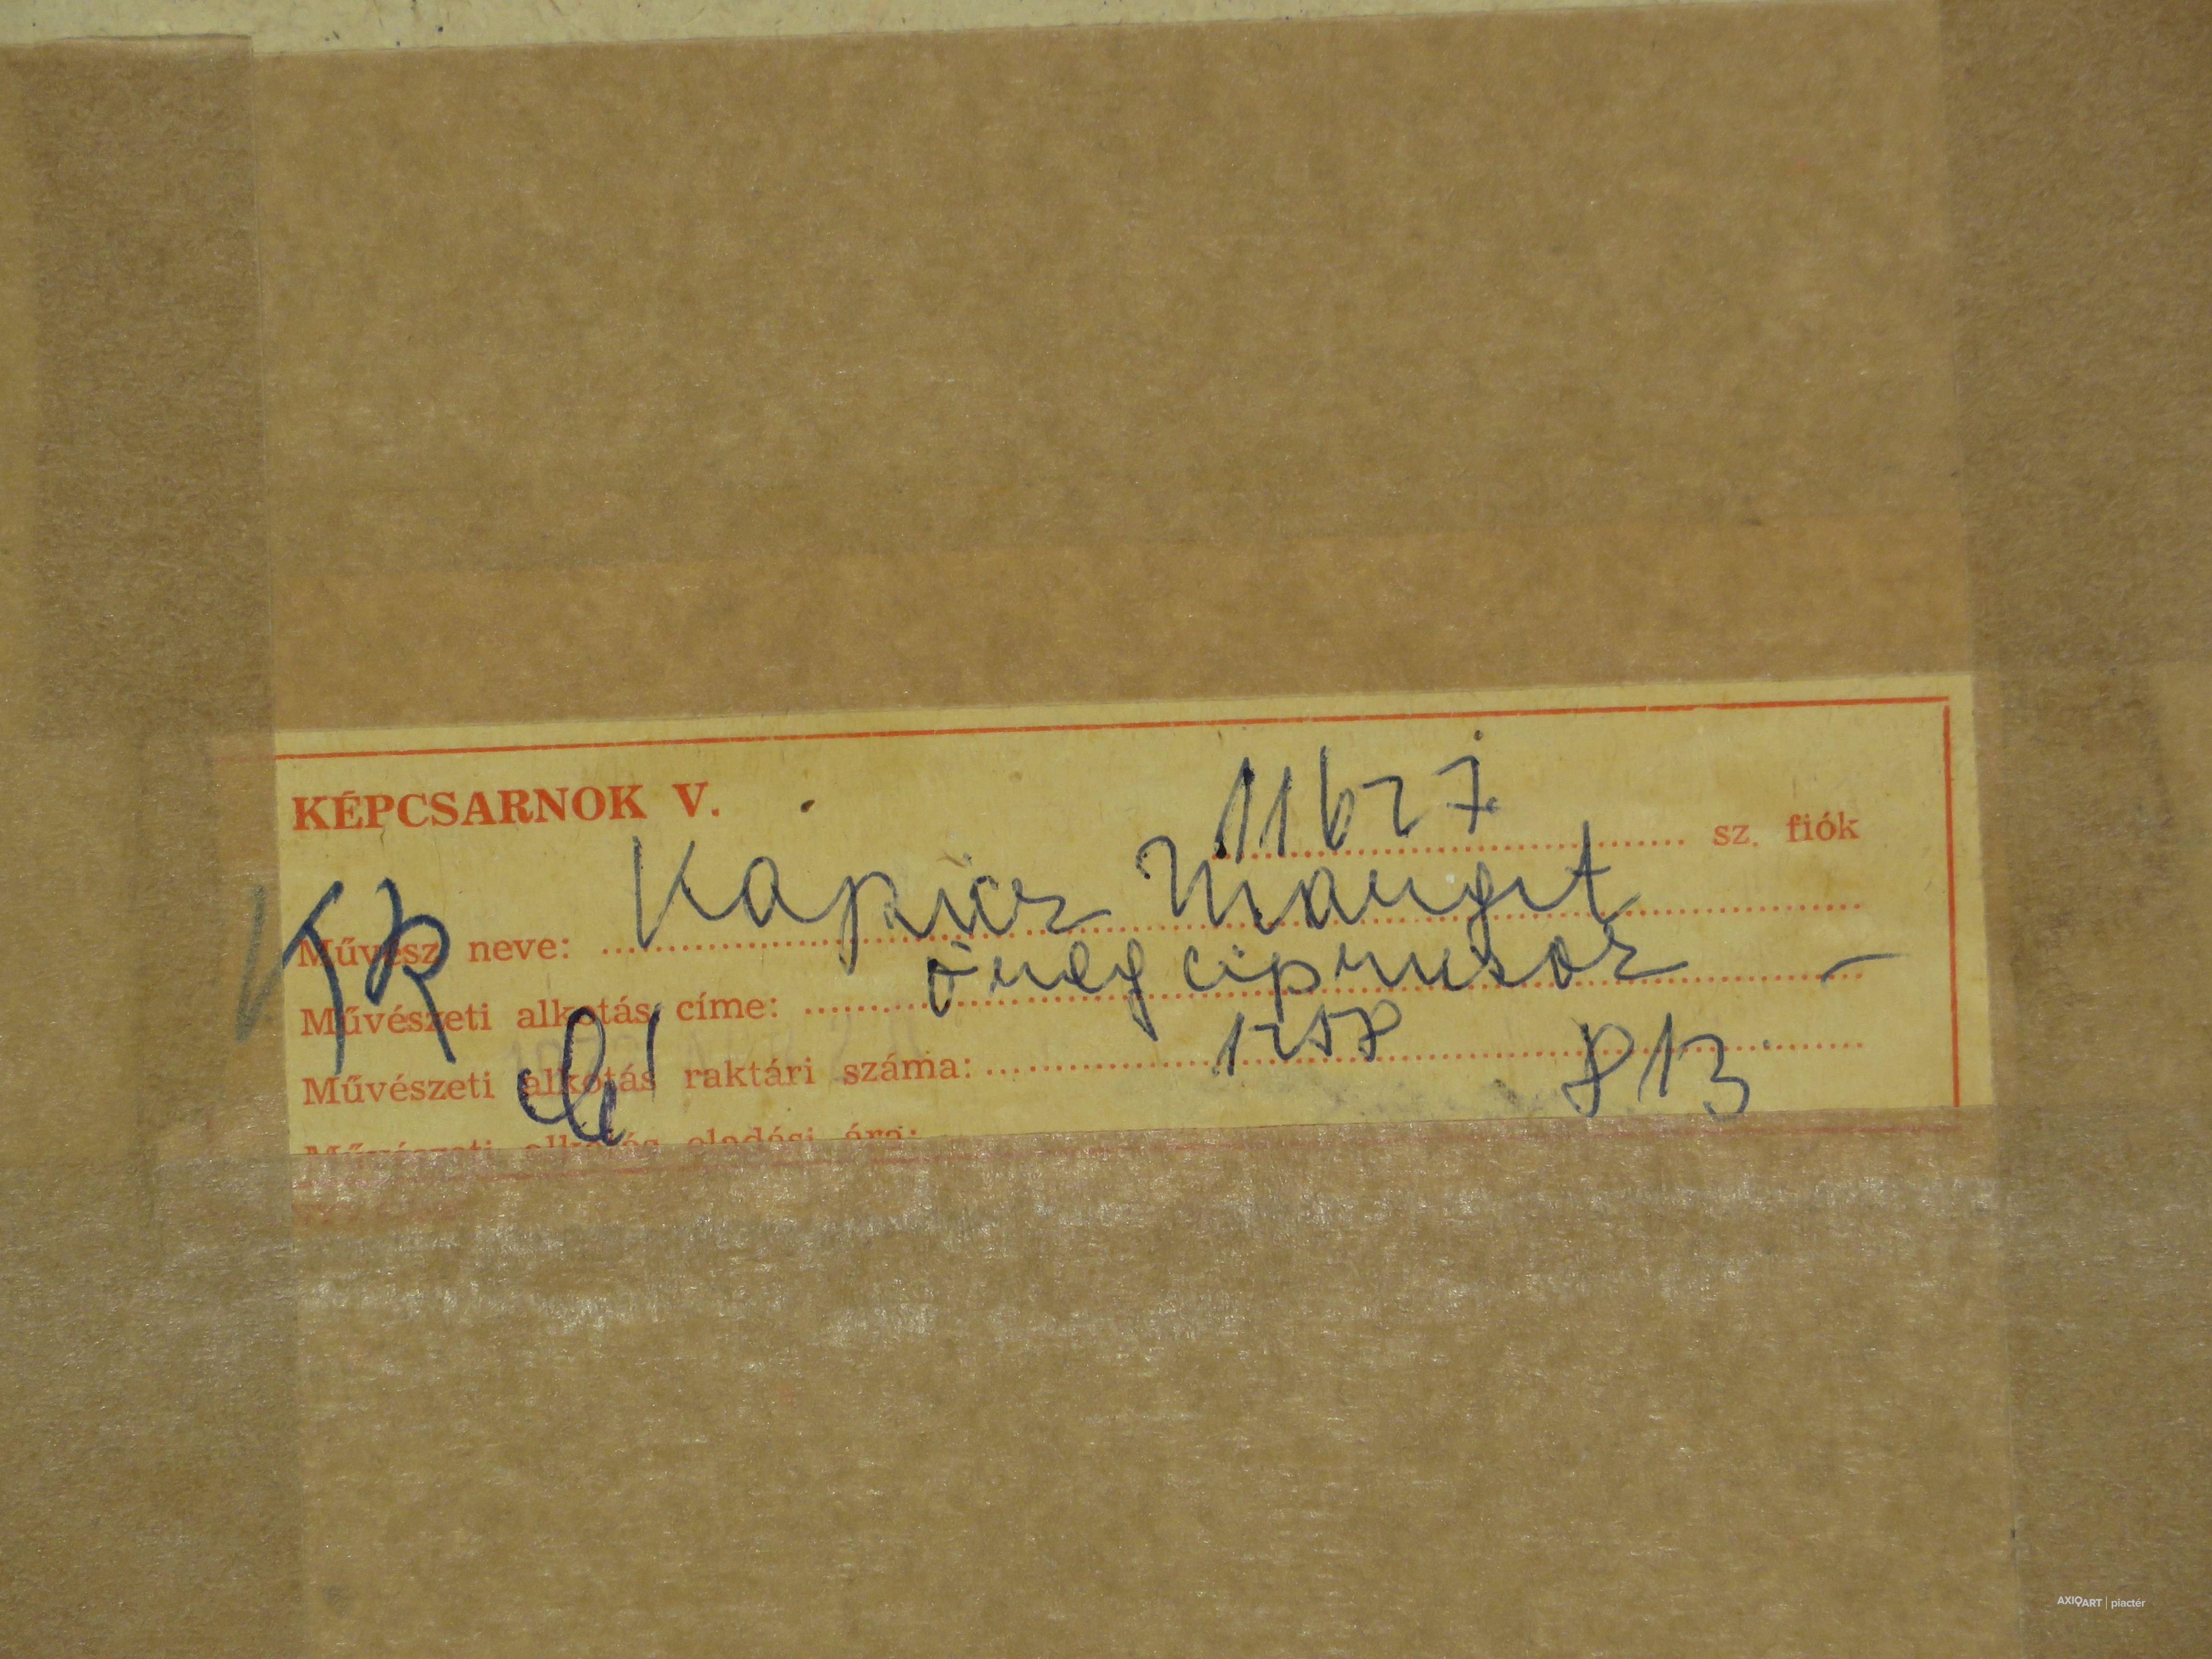 KÉPCSARNOK V.
11627 sz. fiók
Művész neve: Kapicz Margit
Művészeti alkotás címe: öreg ciprusok
Művészeti alkotás raktári száma: 1258
813
Művészeti alkotás eladási ára:
AXIOART | piactér